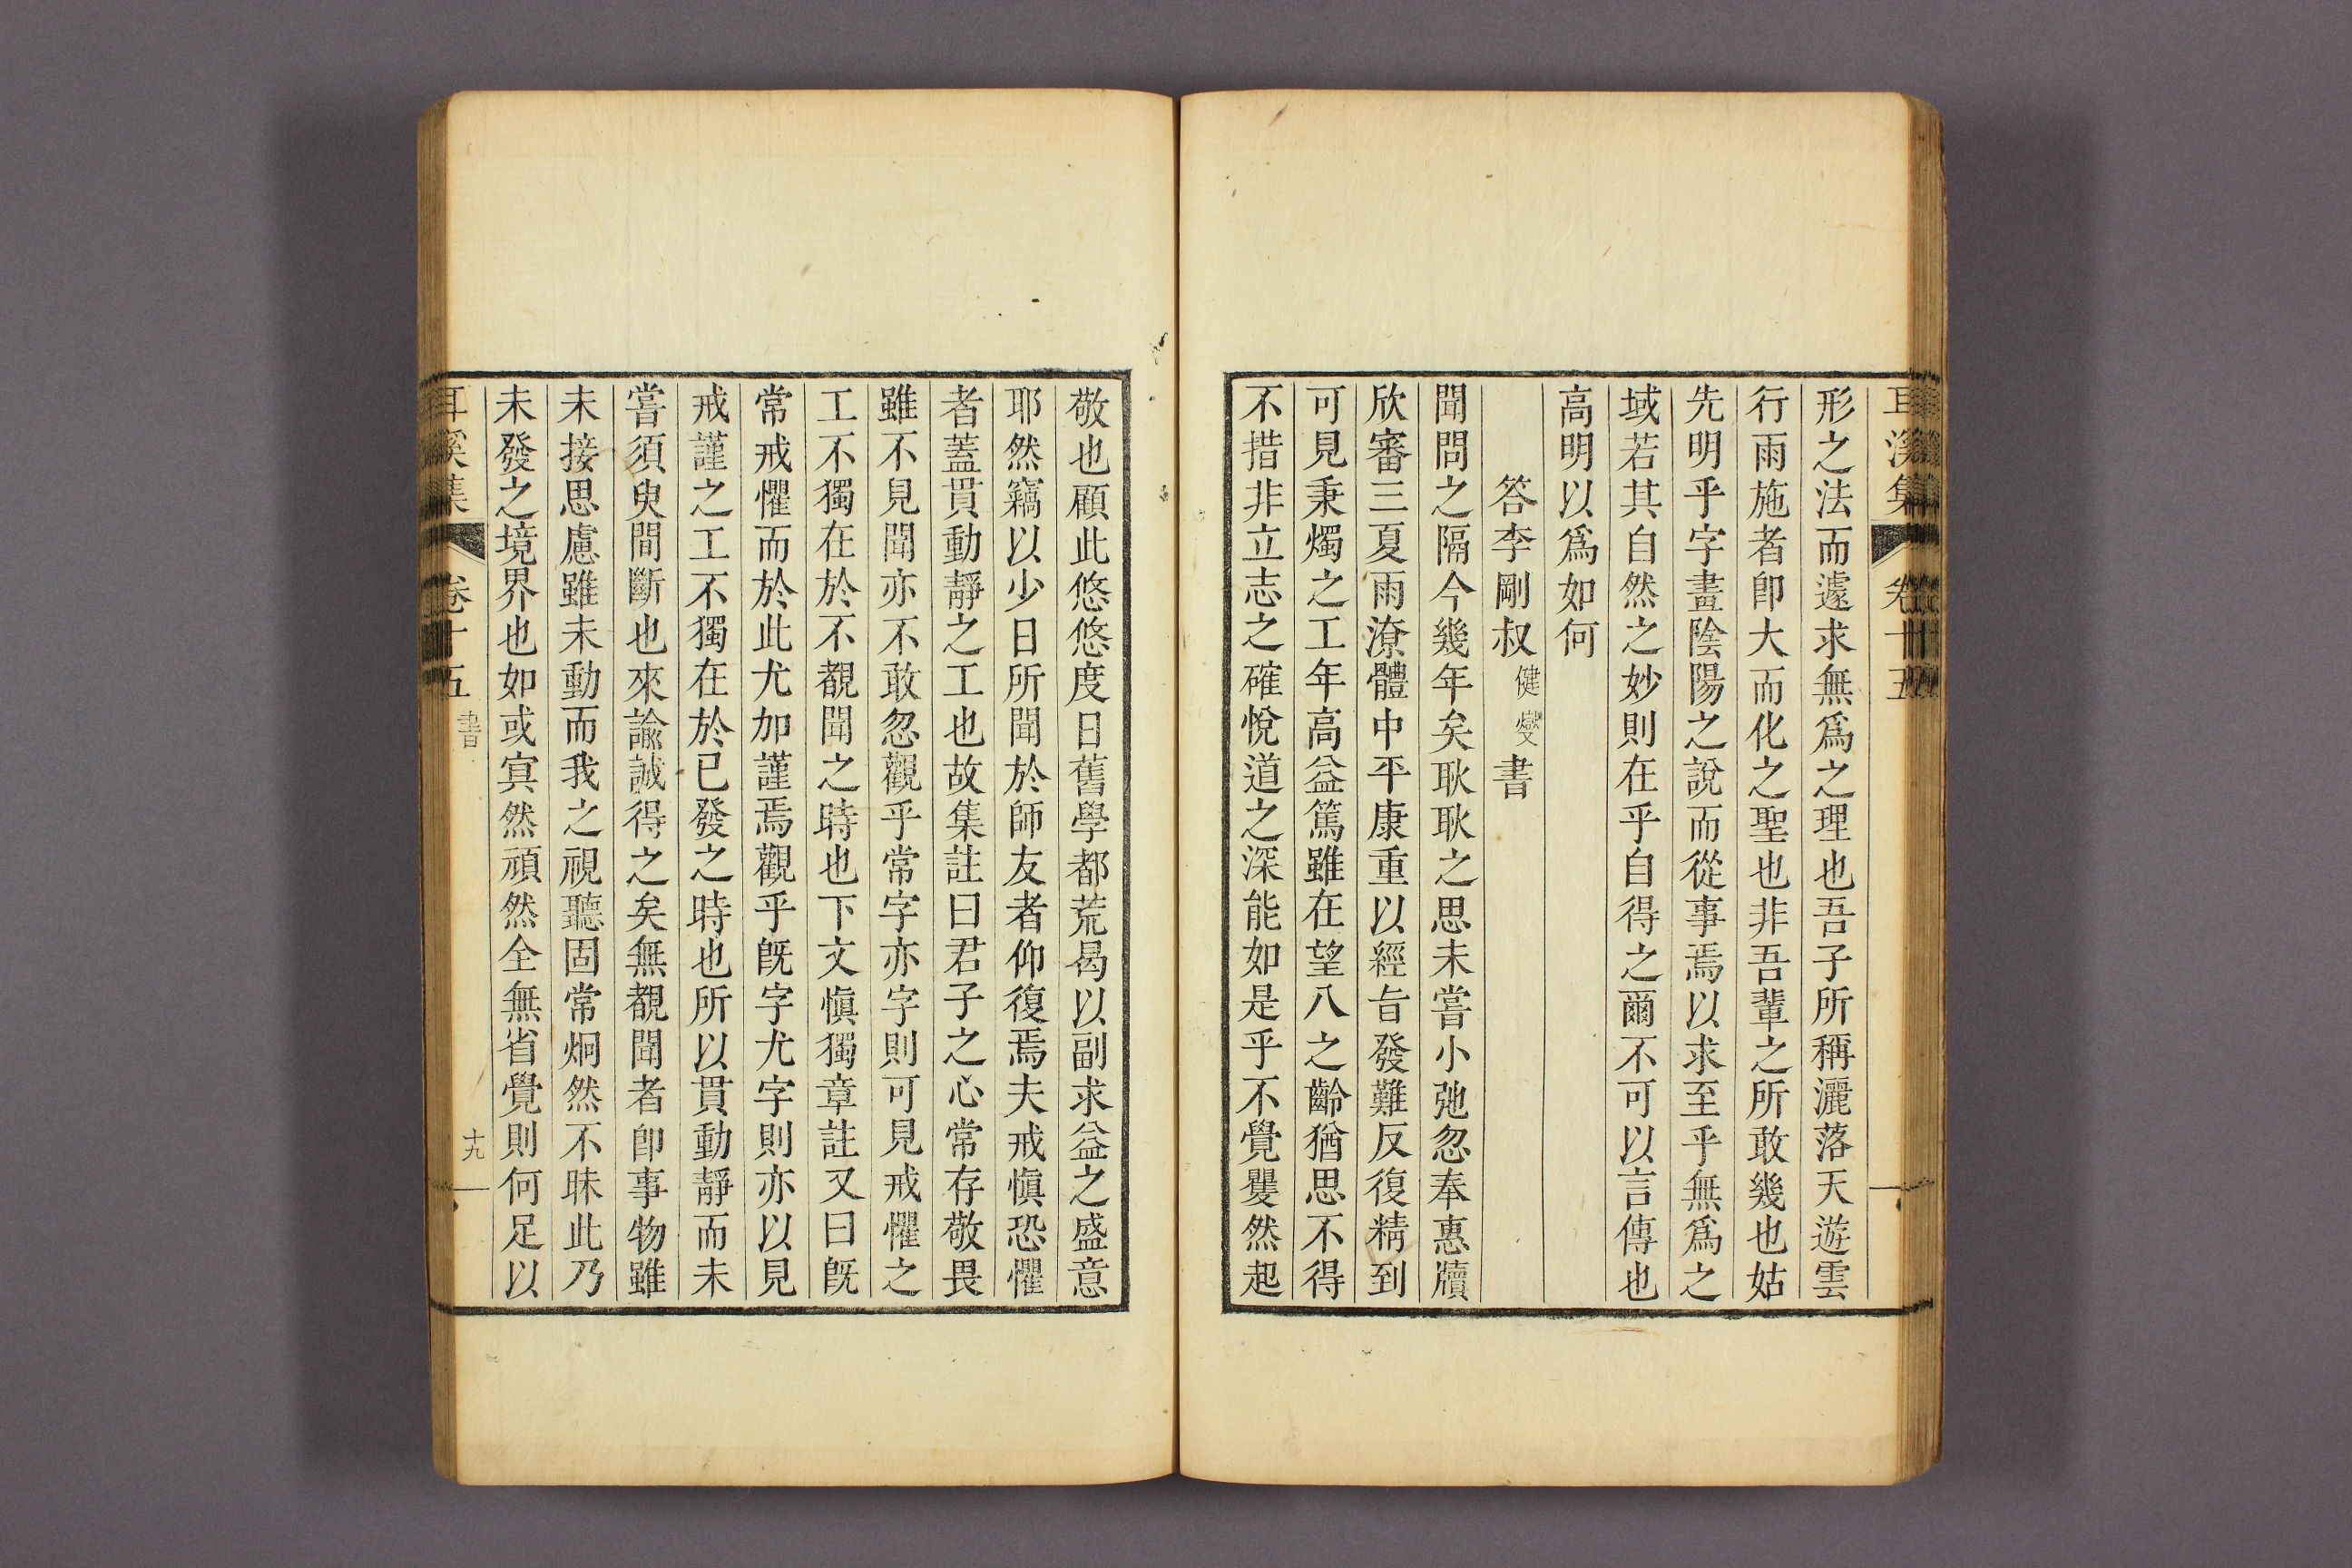 耳溪集 卷十五
形之法而遽求無爲之理也吾子所稱灑落天遊雲
行雨施者卽大而化之聖也非吾輩之所敢幾也姑
先明乎字畫陰陽之說而從事焉以求至乎無爲之
域若其自然之妙則在乎自得之爾不可以言傳也
高明以爲如何
答李剛叔健燮書
聞問之隔今幾年矣耿耿之思未嘗小弛忽奉惠牘
欣審三夏雨潦體中平康重以經旨發難反復精到
可見秉燭之工年高益篤雖在望八之齡猶思不得
不措非立志之確悅道之深能如是乎不覺矍然起
敬也顧此悠悠度日舊學都荒曷以副求益之盛意
耶然竊以少日所聞於師友者仰復焉夫戒愼恐懼
者蓋貫動靜之工也故集註曰君子之心常存敬畏
雖不見聞亦不敢忽觀乎常字亦字則可見戒懼之
工不獨在於不覩聞之時也下文愼獨章註又曰旣
常戒懼而於此尤加謹焉觀乎旣字尤字則亦以見
戒謹之工不獨在於已發之時也所以貫動靜而未
嘗須臾間斷也來諭誠得之矣無覩聞者卽事物雖
未接思慮雖未動而我之視聽固常炯然不昧此乃
未發之境界也如或冥然頑然全無省覺則何足以
耳溪集 卷十五 書 十九